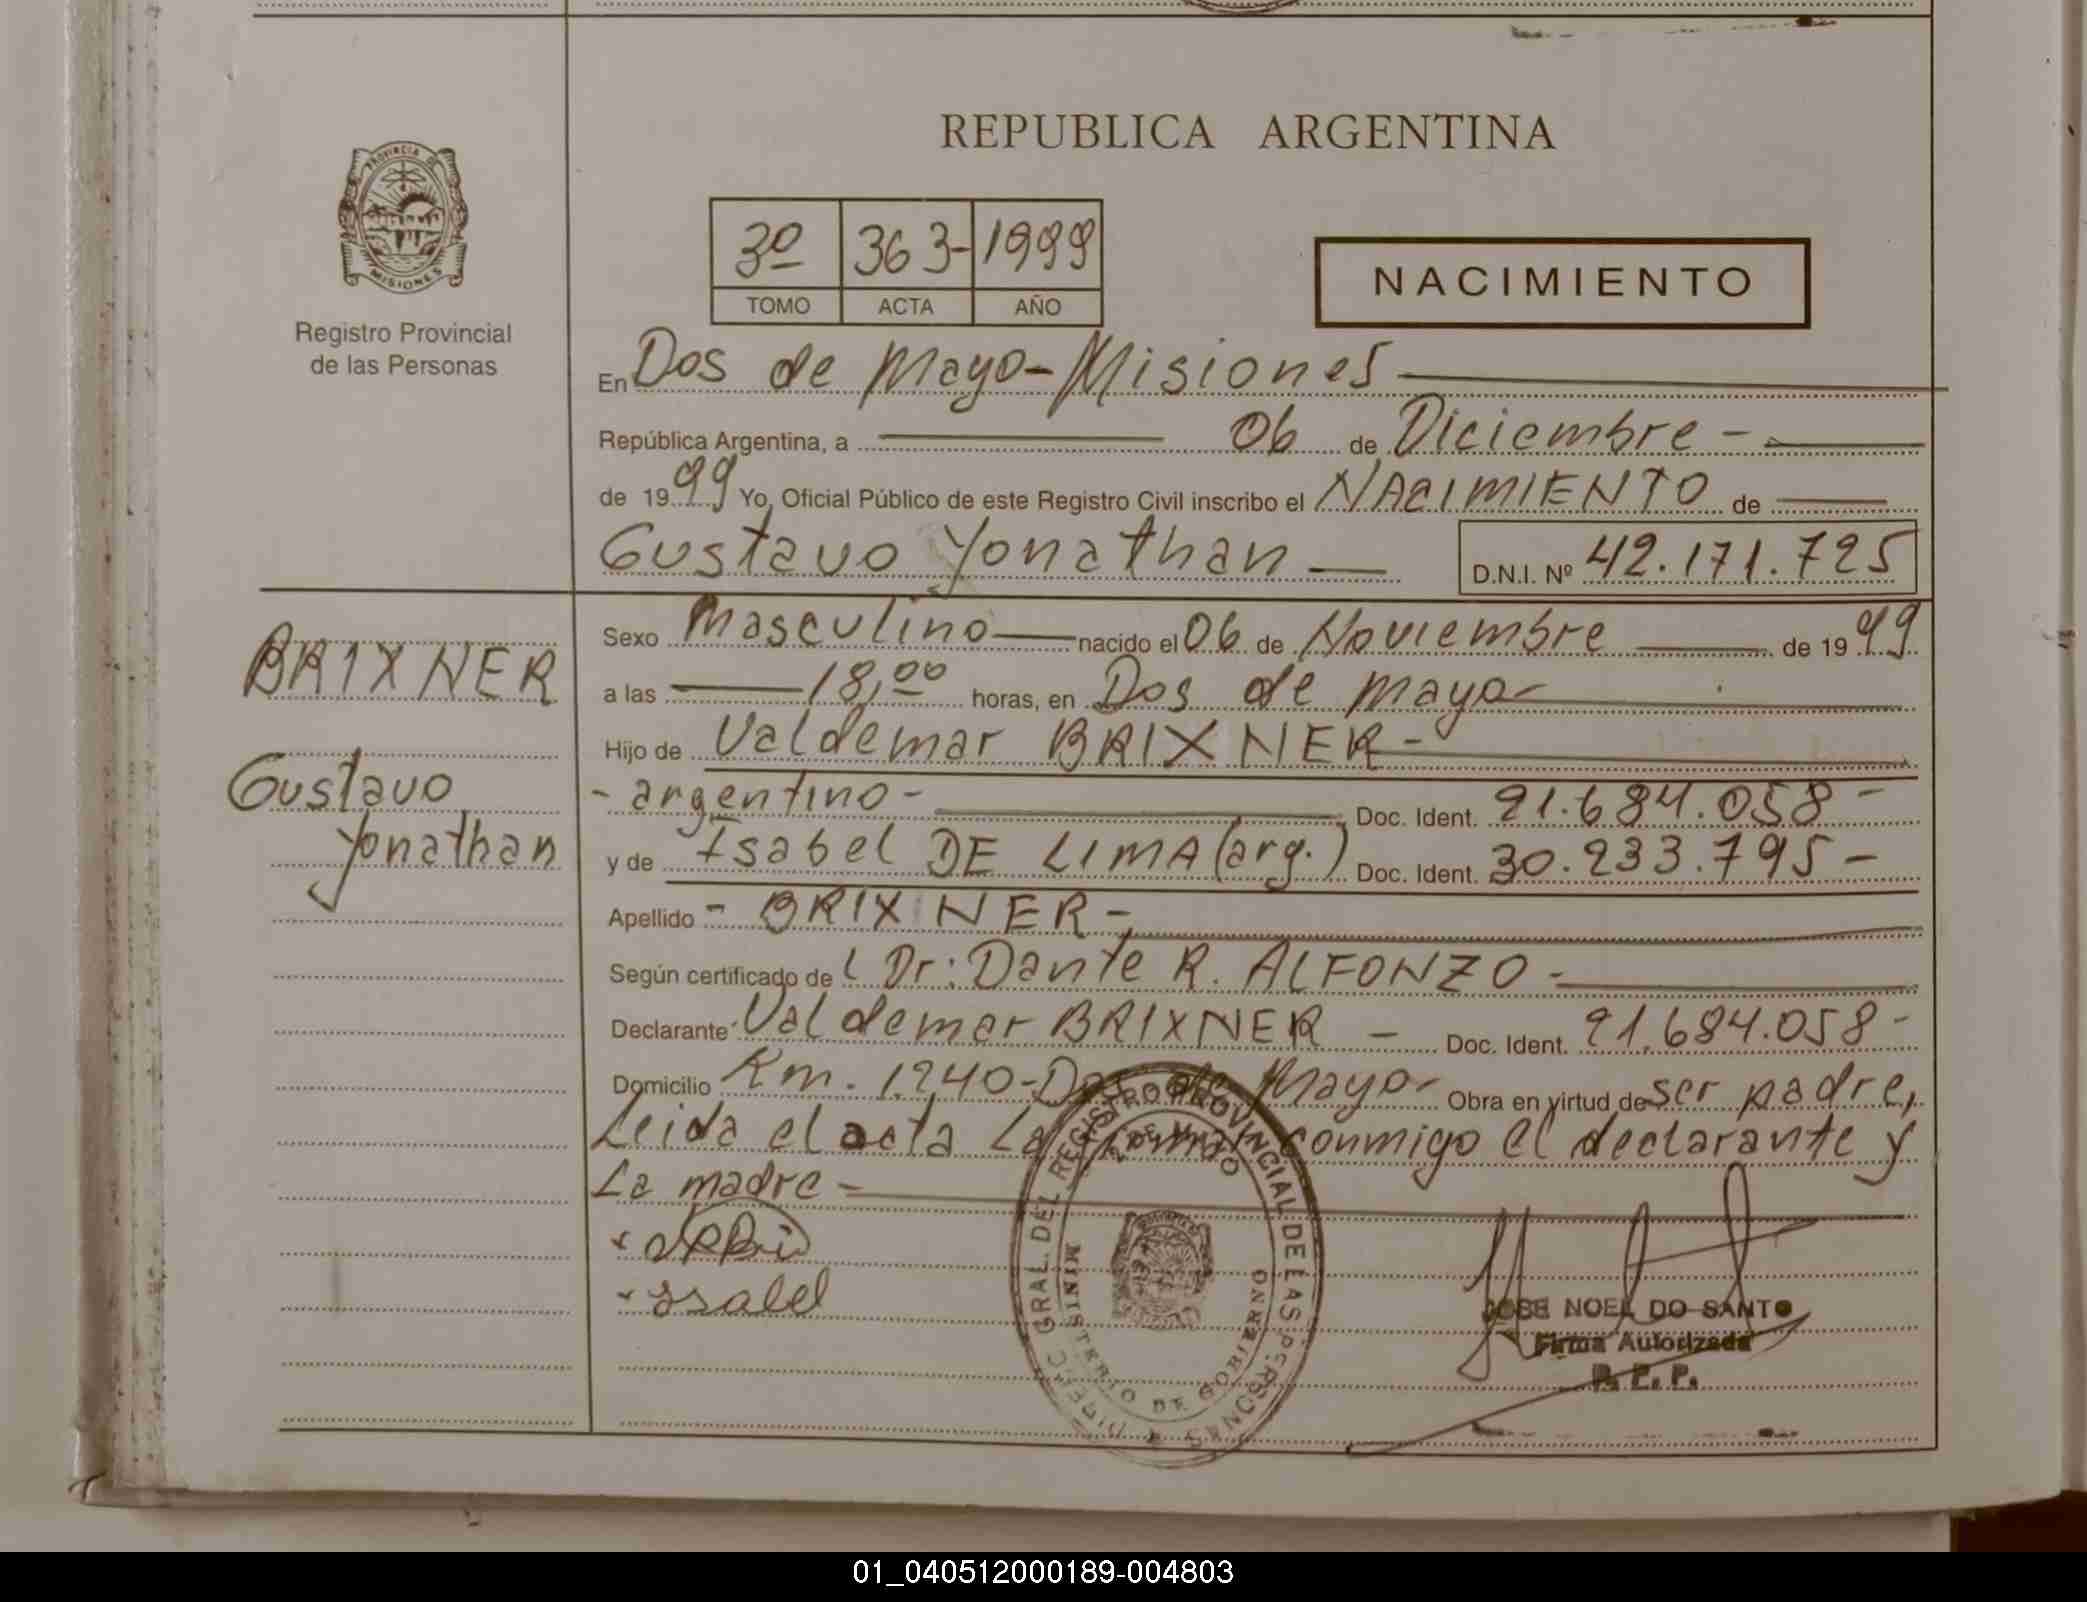 REPUBLICA ARGENTINA
PROVINCIA DE
MISIONES
Registro Provincial
de las Personas
3º 363- 1999
TOMO ACTA AÑO
NACIMIENTO
En Dos de Mayo-Misiones
República Argentina, a 06 de Diciembre -
de 1999 Yo, Oficial Público de este Registro Civil inscribo el NACIMIENTO de
Gustavo Yonathan D.N.I. Nº 42.171.725
BRIXNER
Gustavo
Yonathan
Sexo Masculino nacido el 06 de Noviembre de 1999
a las 18,00 horas, en Dos de Mayo-
Hijo de Valdemar BRIXNER-
- argentino - Doc. Ident. 91.684.058-
y de Isabel DE LIMA (arg.) Doc. Ident. 30.233.795-
Apellido - BRIXNER-
Según certificado de Dr: Dante R. ALFONZO-
Declarante Valdemar BRIXNER - Doc. Ident. 91.684.058-
Domicilio Km. 1.240-Dos de Mayo- Obra en virtud de ser padre,
Leida el acta La firman conmigo el declarante y
La madre-
Isabel
DIREC. GRAL. DEL REGISTRO PROVINCIAL DE LAS PERSONAS
2 DE MAYO
MINISTERIO DE GOBIERNO
JOSE NOEL DO SANTO
Firma Autorizada
R. P. P.
01_040512000189-004803